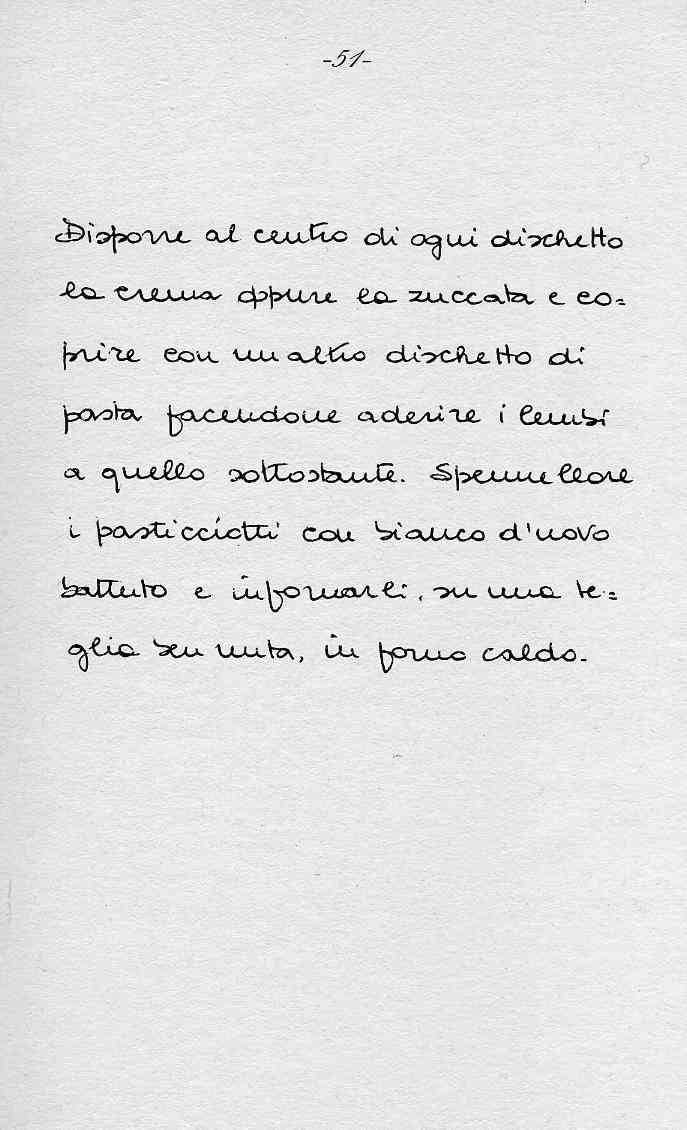 -51-
Disporre al centro di ogni dischetto
la crema oppure la zuccata e co=
prire con un altro dischetto di
pasta facendone aderire i lembi
a quello sottostante. Spennellare
i pasticciotti con bianco d'uovo
battuto e infornarli, su una te=
glia ben unta, in forno caldo.